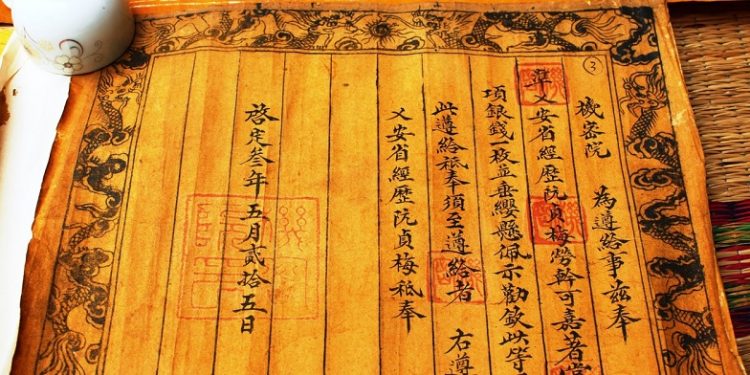 機密院 為遵給事茲奉
準乂安省經歷阮貞梅勞幹可嘉著賞
項銀錢一枚並垂纓懸佩示勸欽此等
此遵給祗奉須至遵給者 右遵
乂安省經歷阮貞梅祗奉
啓定叁年五月貳拾五日